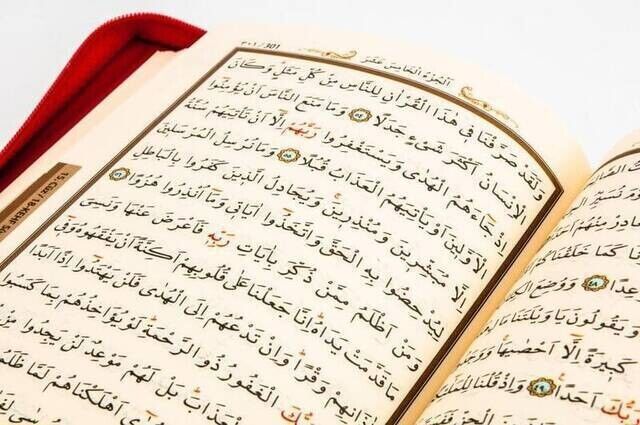 ٣٠١/301
اَلْجُزْءُ الْخَامِسَ عَشَرَ
وَلَقَدْ صَرَّفْنَا فِي هٰذَا الْقُرْاٰنِ لِلنَّاسِ مِنْ كُلِّ مَثَلٍ وَكَانَ
الْاِنْسَانُ اَكْثَرَ شَيْءٍ جَدَلًا ٥٤ وَمَا مَنَعَ النَّاسَ اَنْ يُؤْمِنُوا
اِذْ جَاءَهُمُ الْهُدٰى وَيَسْتَغْفِرُوا رَبَّهُمْ اِلَّا اَنْ تَأْتِيَهُمْ سُنَّةُ
الْاَوَّلِينَ اَوْ يَأْتِيَهُمُ الْعَذَابُ قُبُلًا ٥٥ وَمَا نُرْسِلُ الْمُرْسَلِينَ
اِلَّا مُبَشِّرِينَ وَمُنْذِرِينَ وَيُجَادِلُ الَّذِينَ كَفَرُوا بِالْبَاطِلِ
لِيُدْحِضُوا بِهِ الْحَقَّ وَاتَّخَذُوا اٰيَاتِي وَمَا اُنْذِرُوا هُزُوًا ٥٦
وَمَنْ اَظْلَمُ مِمَّنْ ذُكِّرَ بِاٰيَاتِ رَبِّهِ فَاَعْرَضَ عَنْهَا وَنَسِيَ
مَا قَدَّمَتْ يَدَاهُ اِنَّا جَعَلْنَا عَلٰى قُلُوبِهِمْ اَكِنَّةً اَنْ يَفْقَهُوهُ وَفِي
اٰذَانِهِمْ وَقْرًا وَاِنْ تَدْعُهُمْ اِلَى الْهُدٰى فَلَنْ يَهْتَدُوا اِذًا اَبَدًا
رَبُّكَ الْغَفُورُ ذُو الرَّحْمَةِ لَوْ يُؤَاخِذُهُمْ بِمَا كَسَبُوا
الْعَذَابَ بَلْ لَهُمْ مَوْعِدٌ لَنْ يَجِدُوا مِنْ
اَهْلَكْنَاهُمْ لَمَّا ظَلَمُوا
نُسَيِّرُ
مِنْهُمْ
كَمَا خَلَقْنَا
٤٨ وَوُضِعَ
وَيَقُولُونَ يَا وَيْلَتَنَا
كَبِيرَةً اِلَّا اَحْصٰيهَا
رَبُّكَ اَحَدًا ٤٩ وَاِذْ قُلْنَا